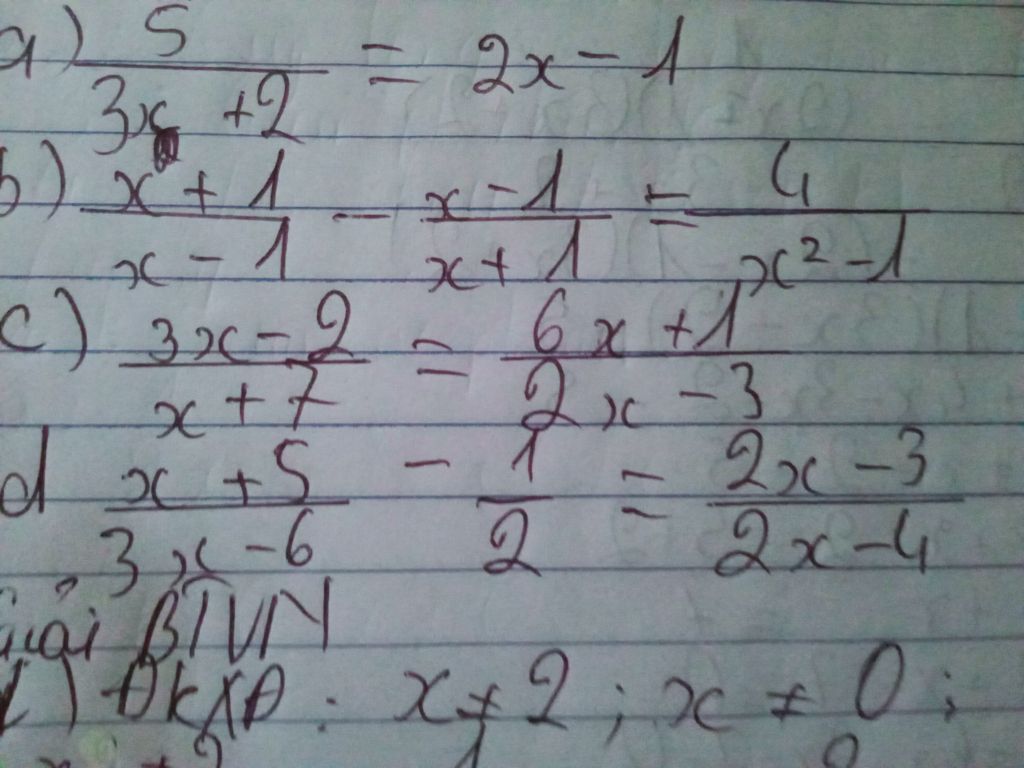 a) 5/(3x +2) = 2x - 1
b) (x + 1)/(x - 1) - (x - 1)/(x + 1) = 4/(x² - 1)
c) (3x - 2)/(x + 7) = (6x + 1)/(2x - 3)
d (x + 5)/(3x - 6) - 1/2 = (2x - 3)/(2x - 4)
Giải BTVN
) ĐKXĐ : x ≠ 2 ; x ≠ 0 ;